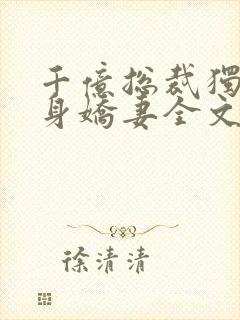 千億總裁獨
身嬌妻全文
徐清清